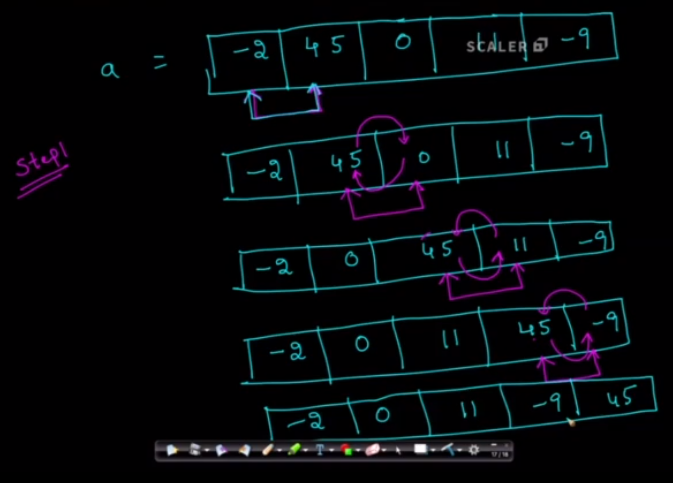 a = -2 45 0 11 -9
SCALER
Step1
-2 45 0 11 -9
-2 0 45 11 -9
-2 0 11 45 -9
-2 0 11 -9 45
17/18